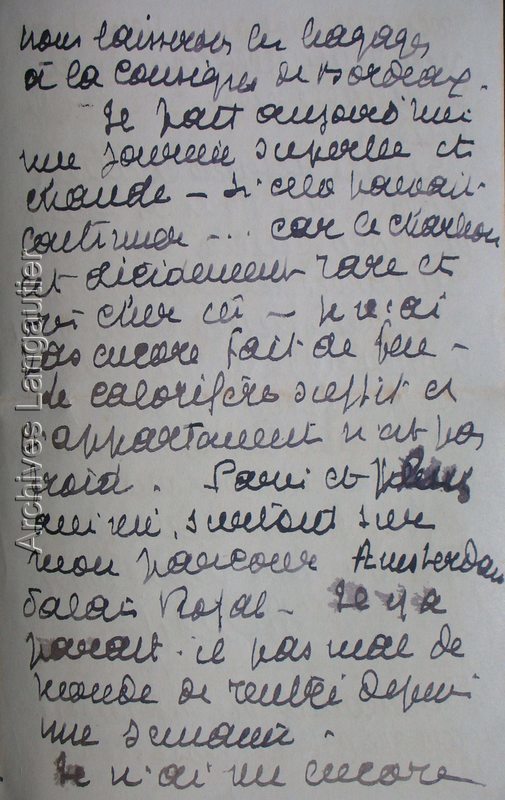 nous laisserons les bagages
à la consigne de Bordeaux.
Il fait aujourd'hui
une journée superbe et
chaude – si cela pouvait
continuer ... car le charbon
est décidément rare et
cher ici – je n'ai
pas encore fait de feu –
le calorifère suffit et
l'appartement n'est pas
froid. Paris est plus
animé, surtout sur
mon parcours Amsterdam
Palais Royal – Il y a
paraît-il pas mal de
monde de rentré depuis
une semaine.
Je n'ai vu encore
Archives Langautier